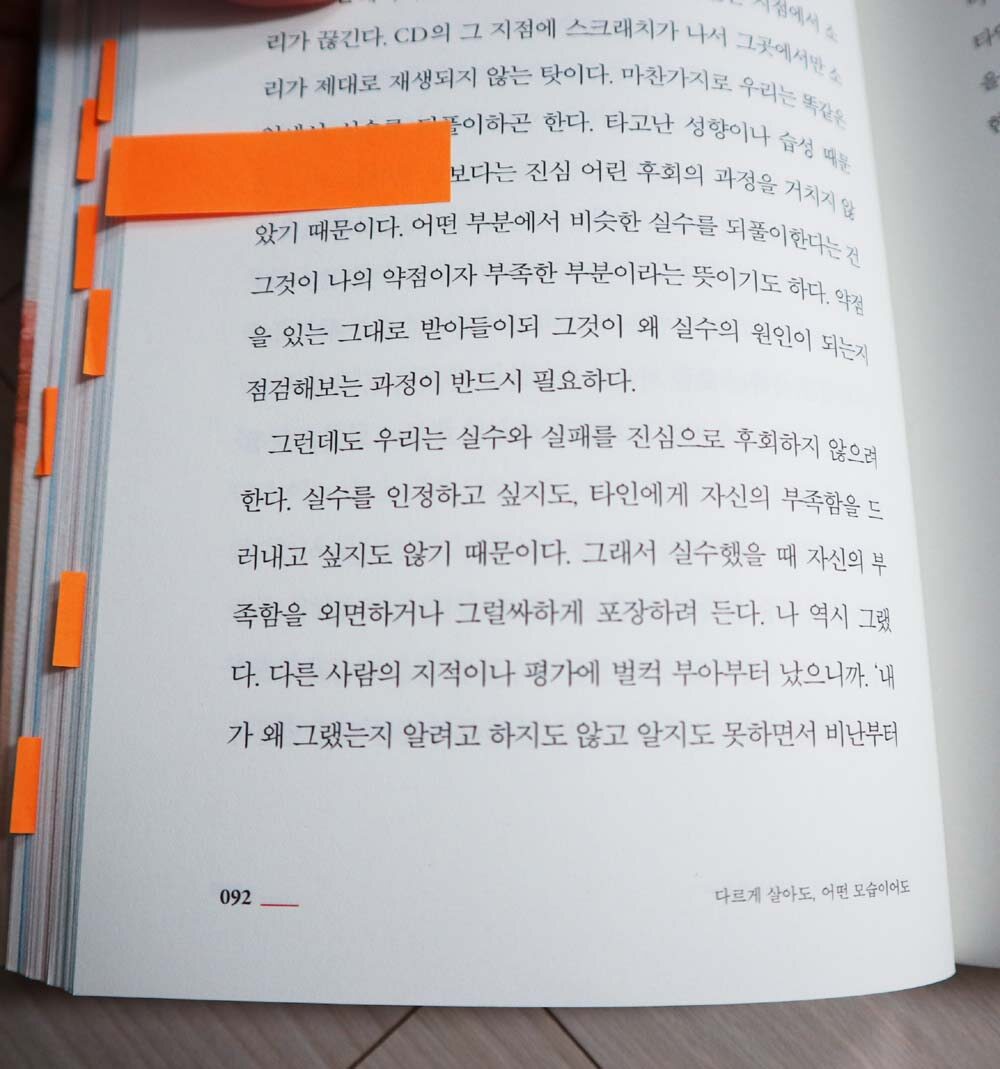 지점에서 소
리가 끊긴다. CD의 그 지점에 스크래치가 나서 그곳에서만 소
리가 제대로 재생되지 않는 탓이다. 마찬가지로 우리는 똑같은
실수를 되풀이하곤 한다. 타고난 성향이나 습성 때문
보다는 진심 어린 후회의 과정을 거치지 않
았기 때문이다. 어떤 부분에서 비슷한 실수를 되풀이한다는 건
그것이 나의 약점이자 부족한 부분이라는 뜻이기도 하다. 약점
을 있는 그대로 받아들이되 그것이 왜 실수의 원인이 되는지
점검해보는 과정이 반드시 필요하다.
그런데도 우리는 실수와 실패를 진심으로 후회하지 않으려
한다. 실수를 인정하고 싶지도, 타인에게 자신의 부족함을 드
러내고 싶지도 않기 때문이다. 그래서 실수했을 때 자신의 부
족함을 외면하거나 그럴싸하게 포장하려 든다. 나 역시 그랬
다. 다른 사람의 지적이나 평가에 벌컥 부아부터 났으니까. ‘내
가 왜 그랬는지 알려고 하지도 않고 알지도 못하면서 비난부터
092
다르게 살아도, 어떤 모습이어도